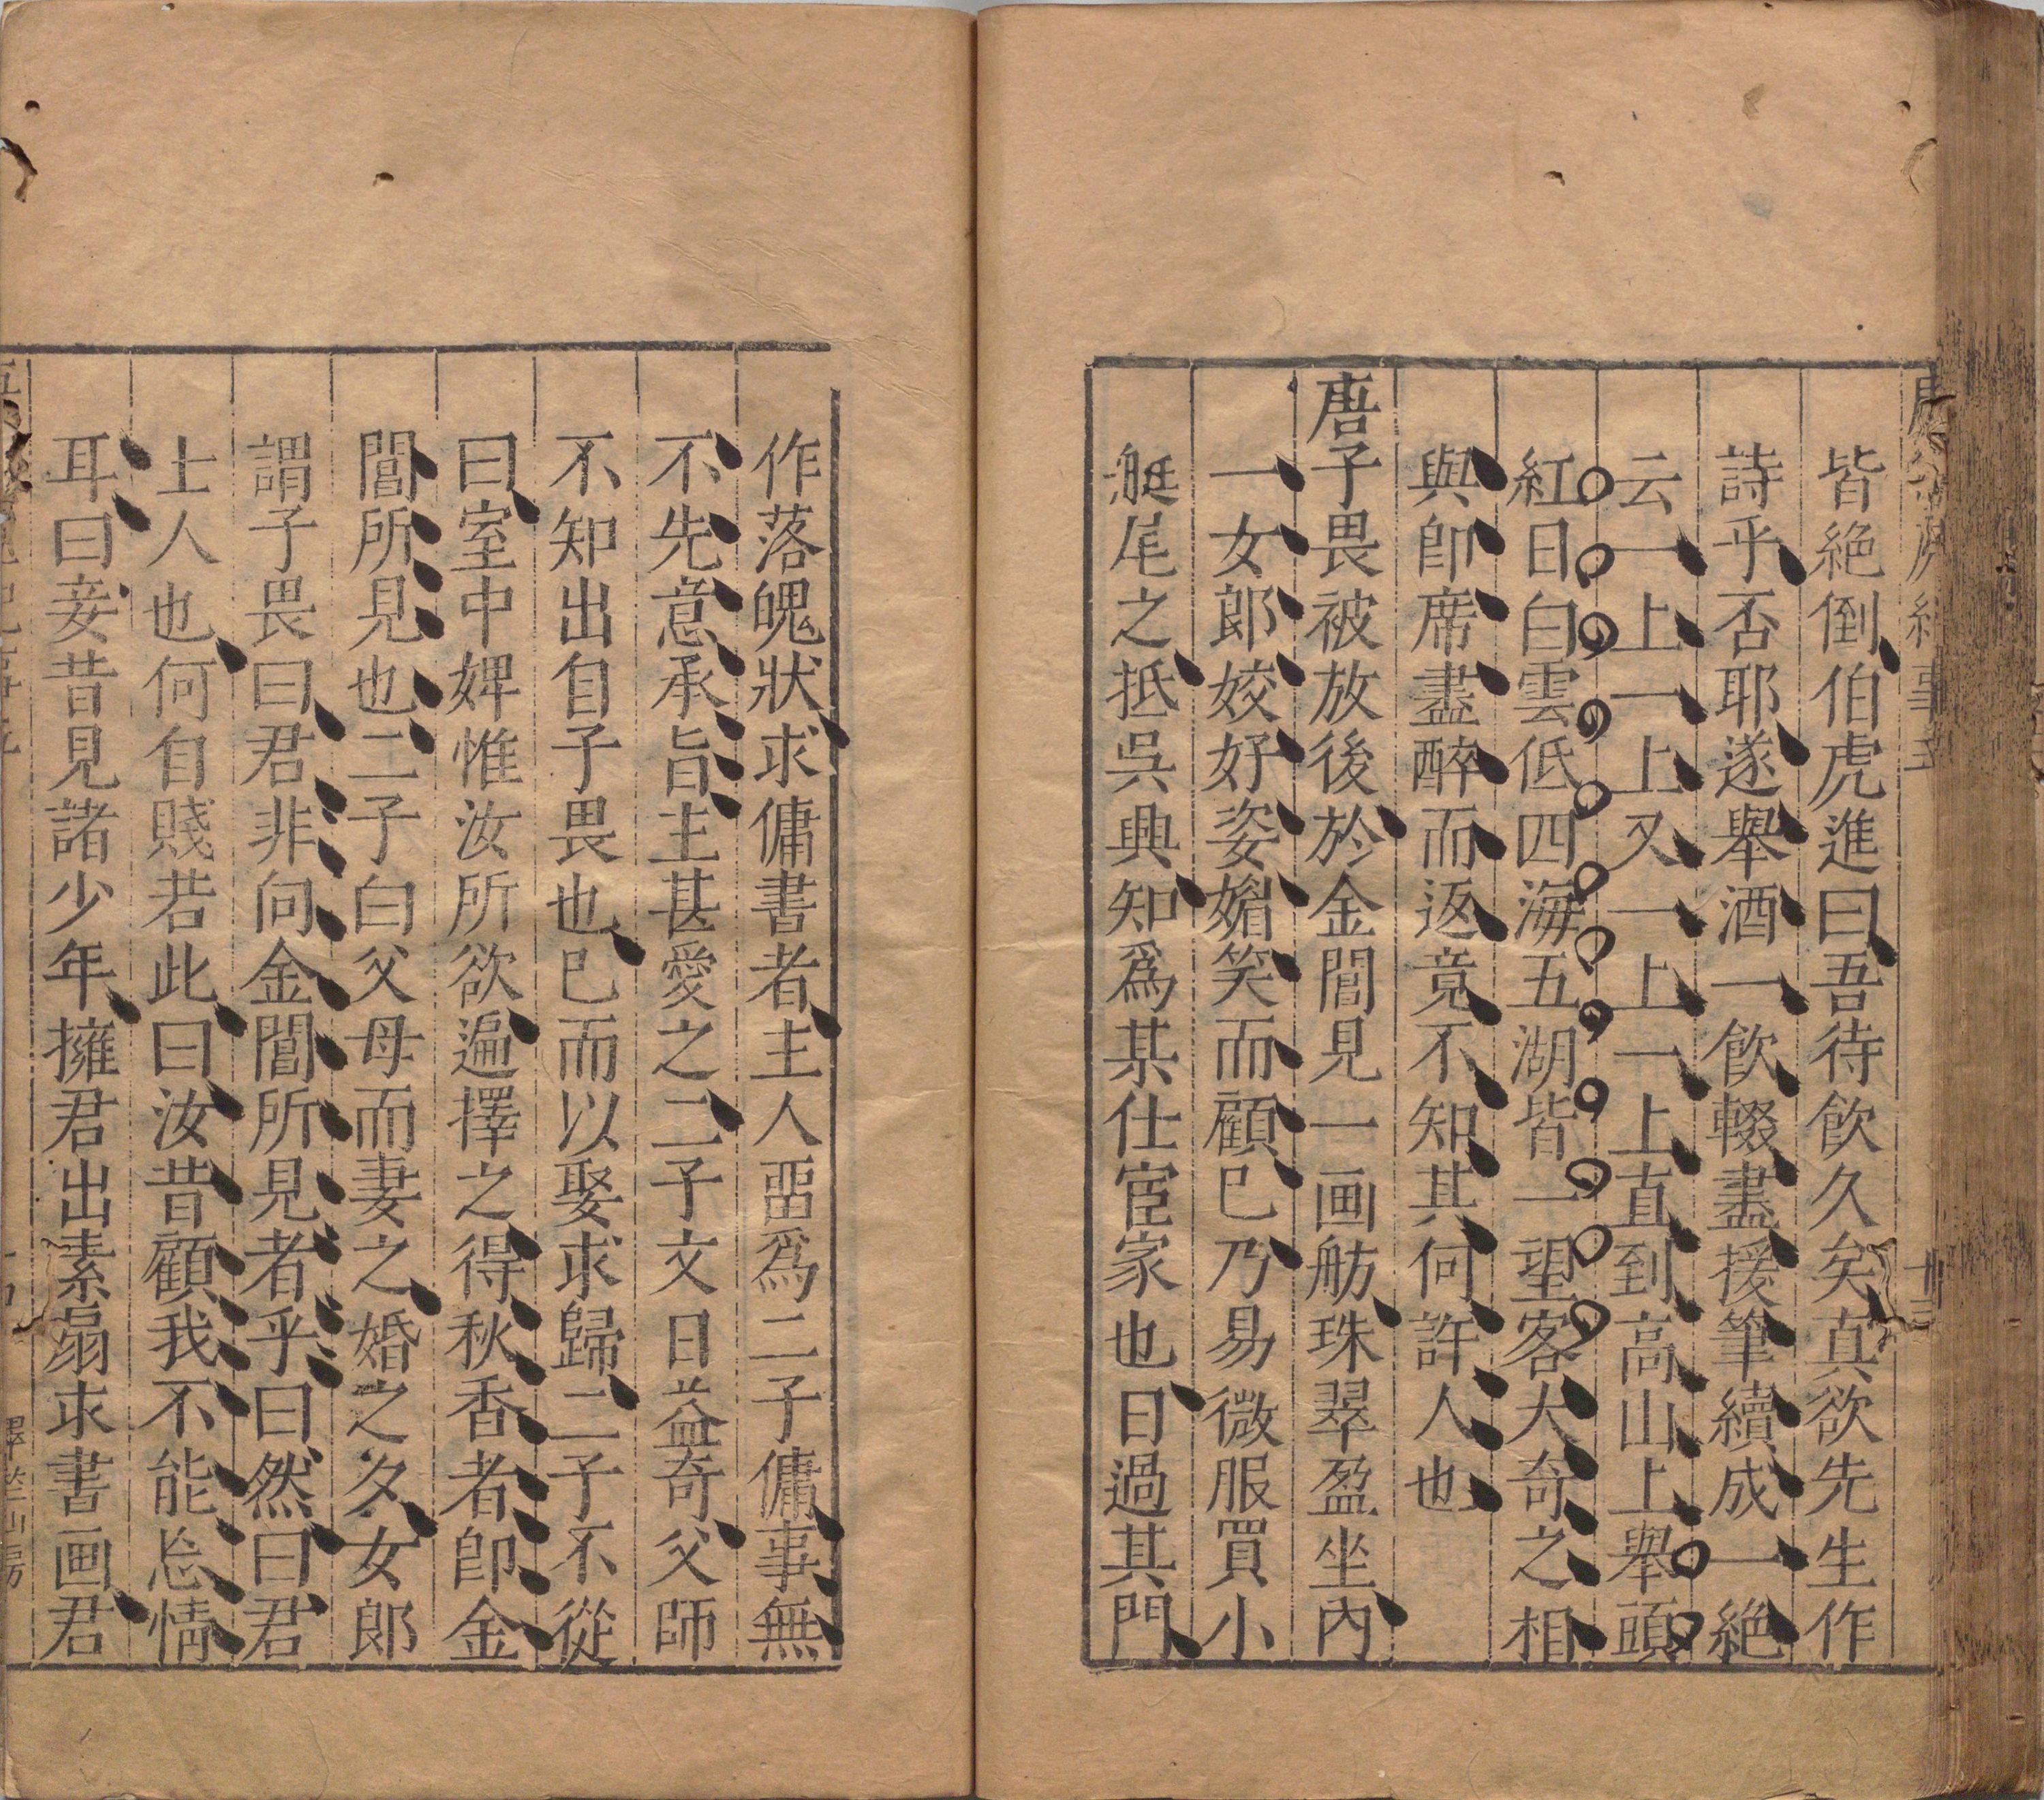 皆絶倒伯虎進曰吾待飲久矣真欲先生作
詩乎否耶遂舉酒一飲輟盡援筆續成一絶
云一上一上又一上一上直到高山上舉頭
紅日白雲低四海五湖皆一望客大奇之相
與卽席盡醉而返竟不知其何許人也
唐子畏被放後於金閶見一画舫珠翠盈坐內
一女郎姣好姿媚笑而顧巳乃易微服買小
艇尾之抵吳興知爲某仕宦家也日過其門
作落魄狀求傭書者主人畱爲二子傭事無
不先意承旨主甚愛之二子文日益奇父師
不知出自子畏也巳而以娶求歸二子不從
曰室中婢惟汝所欲遍擇之得秋香者卽金
閶所見也二子白父母而妻之婚之夕女郎
謂子畏曰君非向金閶所見者乎曰然曰君
士人也何自賤若此曰汝昔顧我不能忘情
耳曰妾昔見諸少年擁君出素扇求書画君